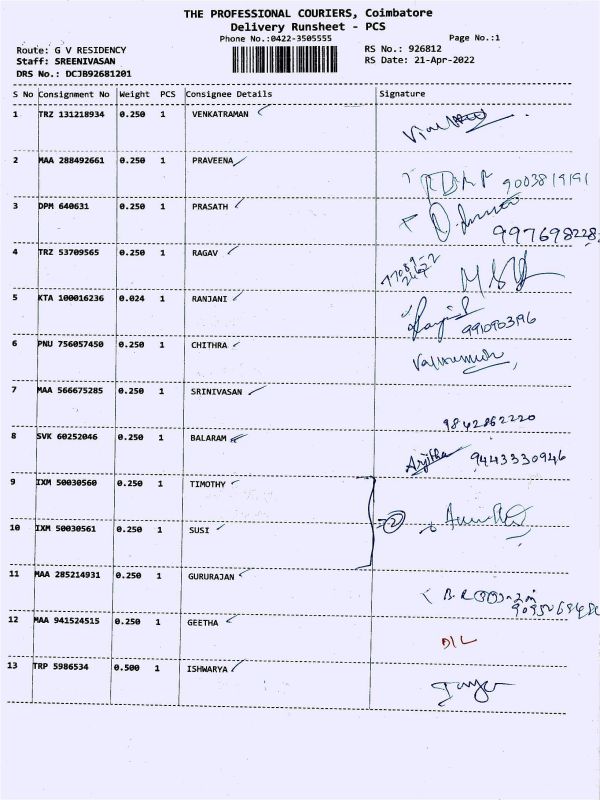 THE PROFESSIONAL COURIERS, Coimbatore
Delivery Runsheet - PCS
Phone No.:0422-3505555
Page No.:1
Route: G V RESIDENCY
RS No.: 926812
Staff: SREENIVASAN
RS Date: 21-Apr-2022
DRS No.: DCJB92681201
S No Consignment No Weight PCS Consignee Details Signature
1 TRZ 131218934 0.250 1 VENKATRAMAN
2 MAA 288492661 0.250 1 PRAVEENA
9003819191
3 DPM 640631 0.250 1 PRASATH
997698228
4 TRZ 53709565 0.250 1 RAGAV
5 KTA 100016236 0.024 1 RANJANI
6 PNU 756057450 0.250 1 CHITHRA
7 MAA 566675285 0.250 1 SRINIVASAN
9842862220
8 SVK 60252046 0.250 1 BALARAM
Arjitha 9443330946
9 IXM 50030560 0.250 1 TIMOTHY
2
10 IXM 50030561 0.250 1 SUSI
11 MAA 285214931 0.250 1 GURURAJAN
12 MAA 941524515 0.250 1 GEETHA
D/L
13 TRP 5986534 0.500 1 ISHWARYA